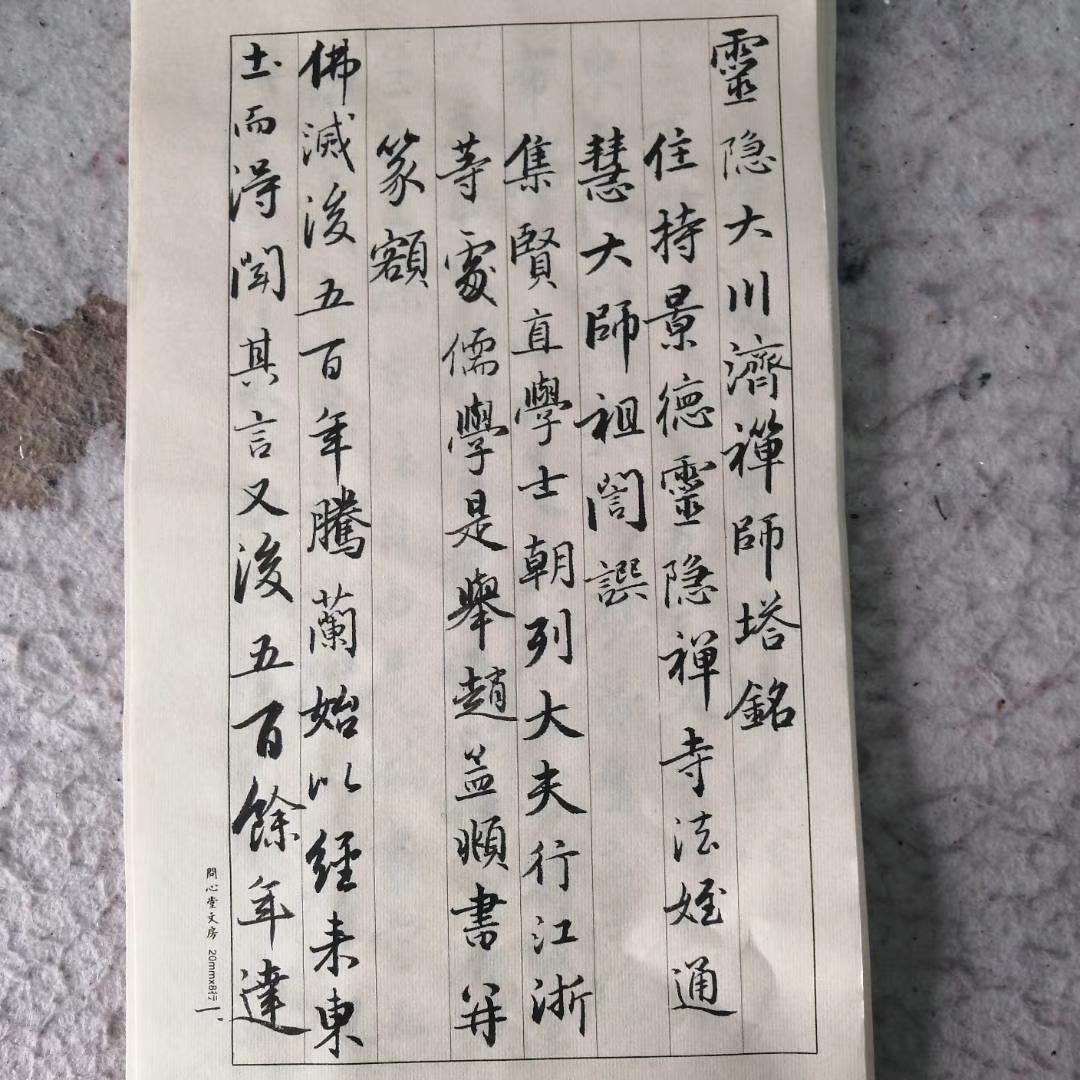 靈隐大川濟禪師塔銘
住持景德靈隐禅寺法姪通
慧大師祖誾譔
集賢直學士朝列大夫行江浙
等處儒學是舉趙孟頫書并
篆額
佛滅後五百年騰蘭始以經来東
土而淂聞其言又後五百餘年達
問心堂文房 20mmx8行